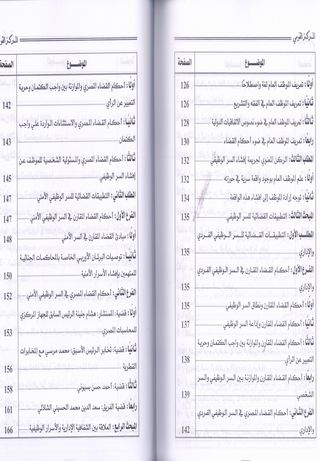 المركز القومي
الموضوع
الصفحة
أولاً: تعريف الموظف العام لغة واصطلاحًا
126
ثانيًا: تعريف الموظف العام في الفقه والتشريع
126
ثالثًا: تعريف الموظف العام في ضوء نصوص الاتفاقيات الدولية
128
رابعًا: تعريف الموظف العام في ضوء أحكام القضاء
130
المطلب الثالث: الركن المعنوي لجريمة إفشاء السر الوظيفي
132
أولاً: علم الموظف العام بوجود واقعة سرية في حوزته
132
ثانيًا: توجه إرادة الموظف إلى إفشاء هذه الواقعة
134
المبحث الثالث: التطبيقات القضائية للسر الوظيفي
135
المطلب الأول: التطبيقات القضائية للسر الوظيفي الفردي
والإداري
135
الفرع الأول: أحكام القضاء المقارن في السر الوظيفي الفردي
والإداري
135
أولاً: أحكام القضاء المقارن ونطاق السر الوظيفي
135
ثانيًا: أحكام القضاء المقارن وإذاعة السر الوظيفي
137
ثالثًا: أحكام القضاء المقارن والموازنة بين واجب الكتمان وحرية
التعبير عن الرأي
138
رابعًا: أحكام القضاء المقارن والموازنة بين السر الوظيفي والسر
الشخصي
139
الفرع الثاني: أحكام القضاء المصري في السر الوظيفي الفردي
والإداري
142
المركز القومي
الموضوع
الصفحة
أولاً: أحكام القضاء المصري والموازنة بين واجب الكتمان وحرية
التعبير عن الرأي
142
ثانيًا: أحكام القضاء المصري والاستثناءات الواردة على واجب
الكتمان
143
ثالثًا: أحكام القضاء المصري والمسئولية الشخصية للموظف عن
إفشاء السر الوظيفي
145
المطلب الثاني: التطبيقات القضائية للسر الوظيفي الأمني
147
الفرع الأول: أحكام القضاء المقارن في السر الوظيفي الأمني
147
أولاً: مبادئ القضاء المقارن في السر الأمني
148
ثانيًا: توصيات البرلمان الأوروبي الخاصة والمحاكمات الجنائية
للمتهمين بإفشاء الأسرار الأمنية
150
الفرع الثاني: أحكام القضاء المصري في السر الوظيفي الأمني
152
أولاً: قضية: المستشار: هشام جنينة الرئيس السابق للجهاز المركزي
للمحاسبات المصري
153
ثانيًا: قضية: تخابر الرئيس الأسبق: محمد مرسي مع المخابرات
القطرية
156
ثالثًا: قضية: أحمد حسن بسيوني
158
رابعًا: قضية الفريق: سعد الدين محمد الحسيني الشاذلي
161
المبحث الرابع: العلاقة بين الشفافية الإدارية والأسرار الوظيفية
166